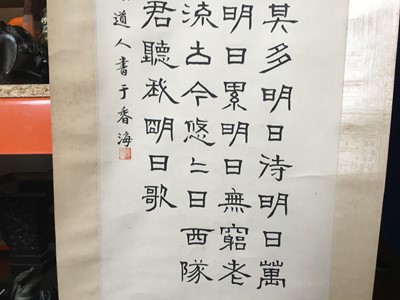 其多明日待明日萬
明日累明日無窮老
流古今悠々日西隊
君聽我明日歌
道人書于香海